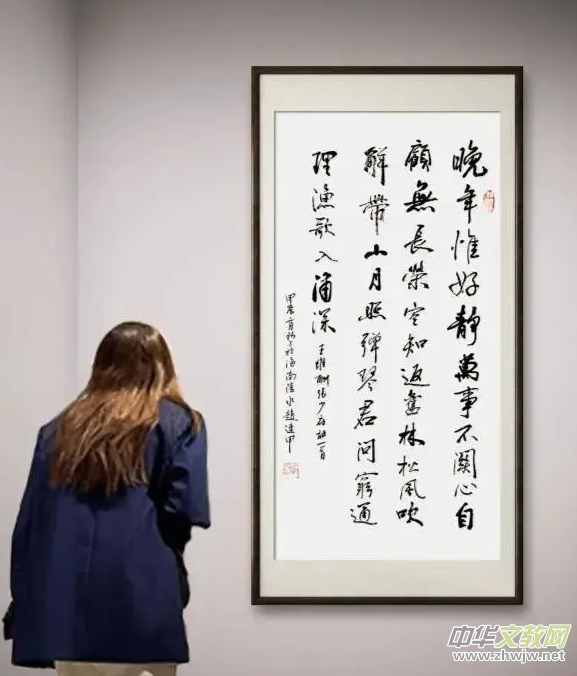 晚年惟好靜萬事不關心自
顧無長策空知返舊林松風吹
解帶山月照彈琴君問窮通
理漁歌入浦深
王維酬張少府詩一首
甲辰 於海南陵水趙連甲
中华文教网
www.zhwjw.net